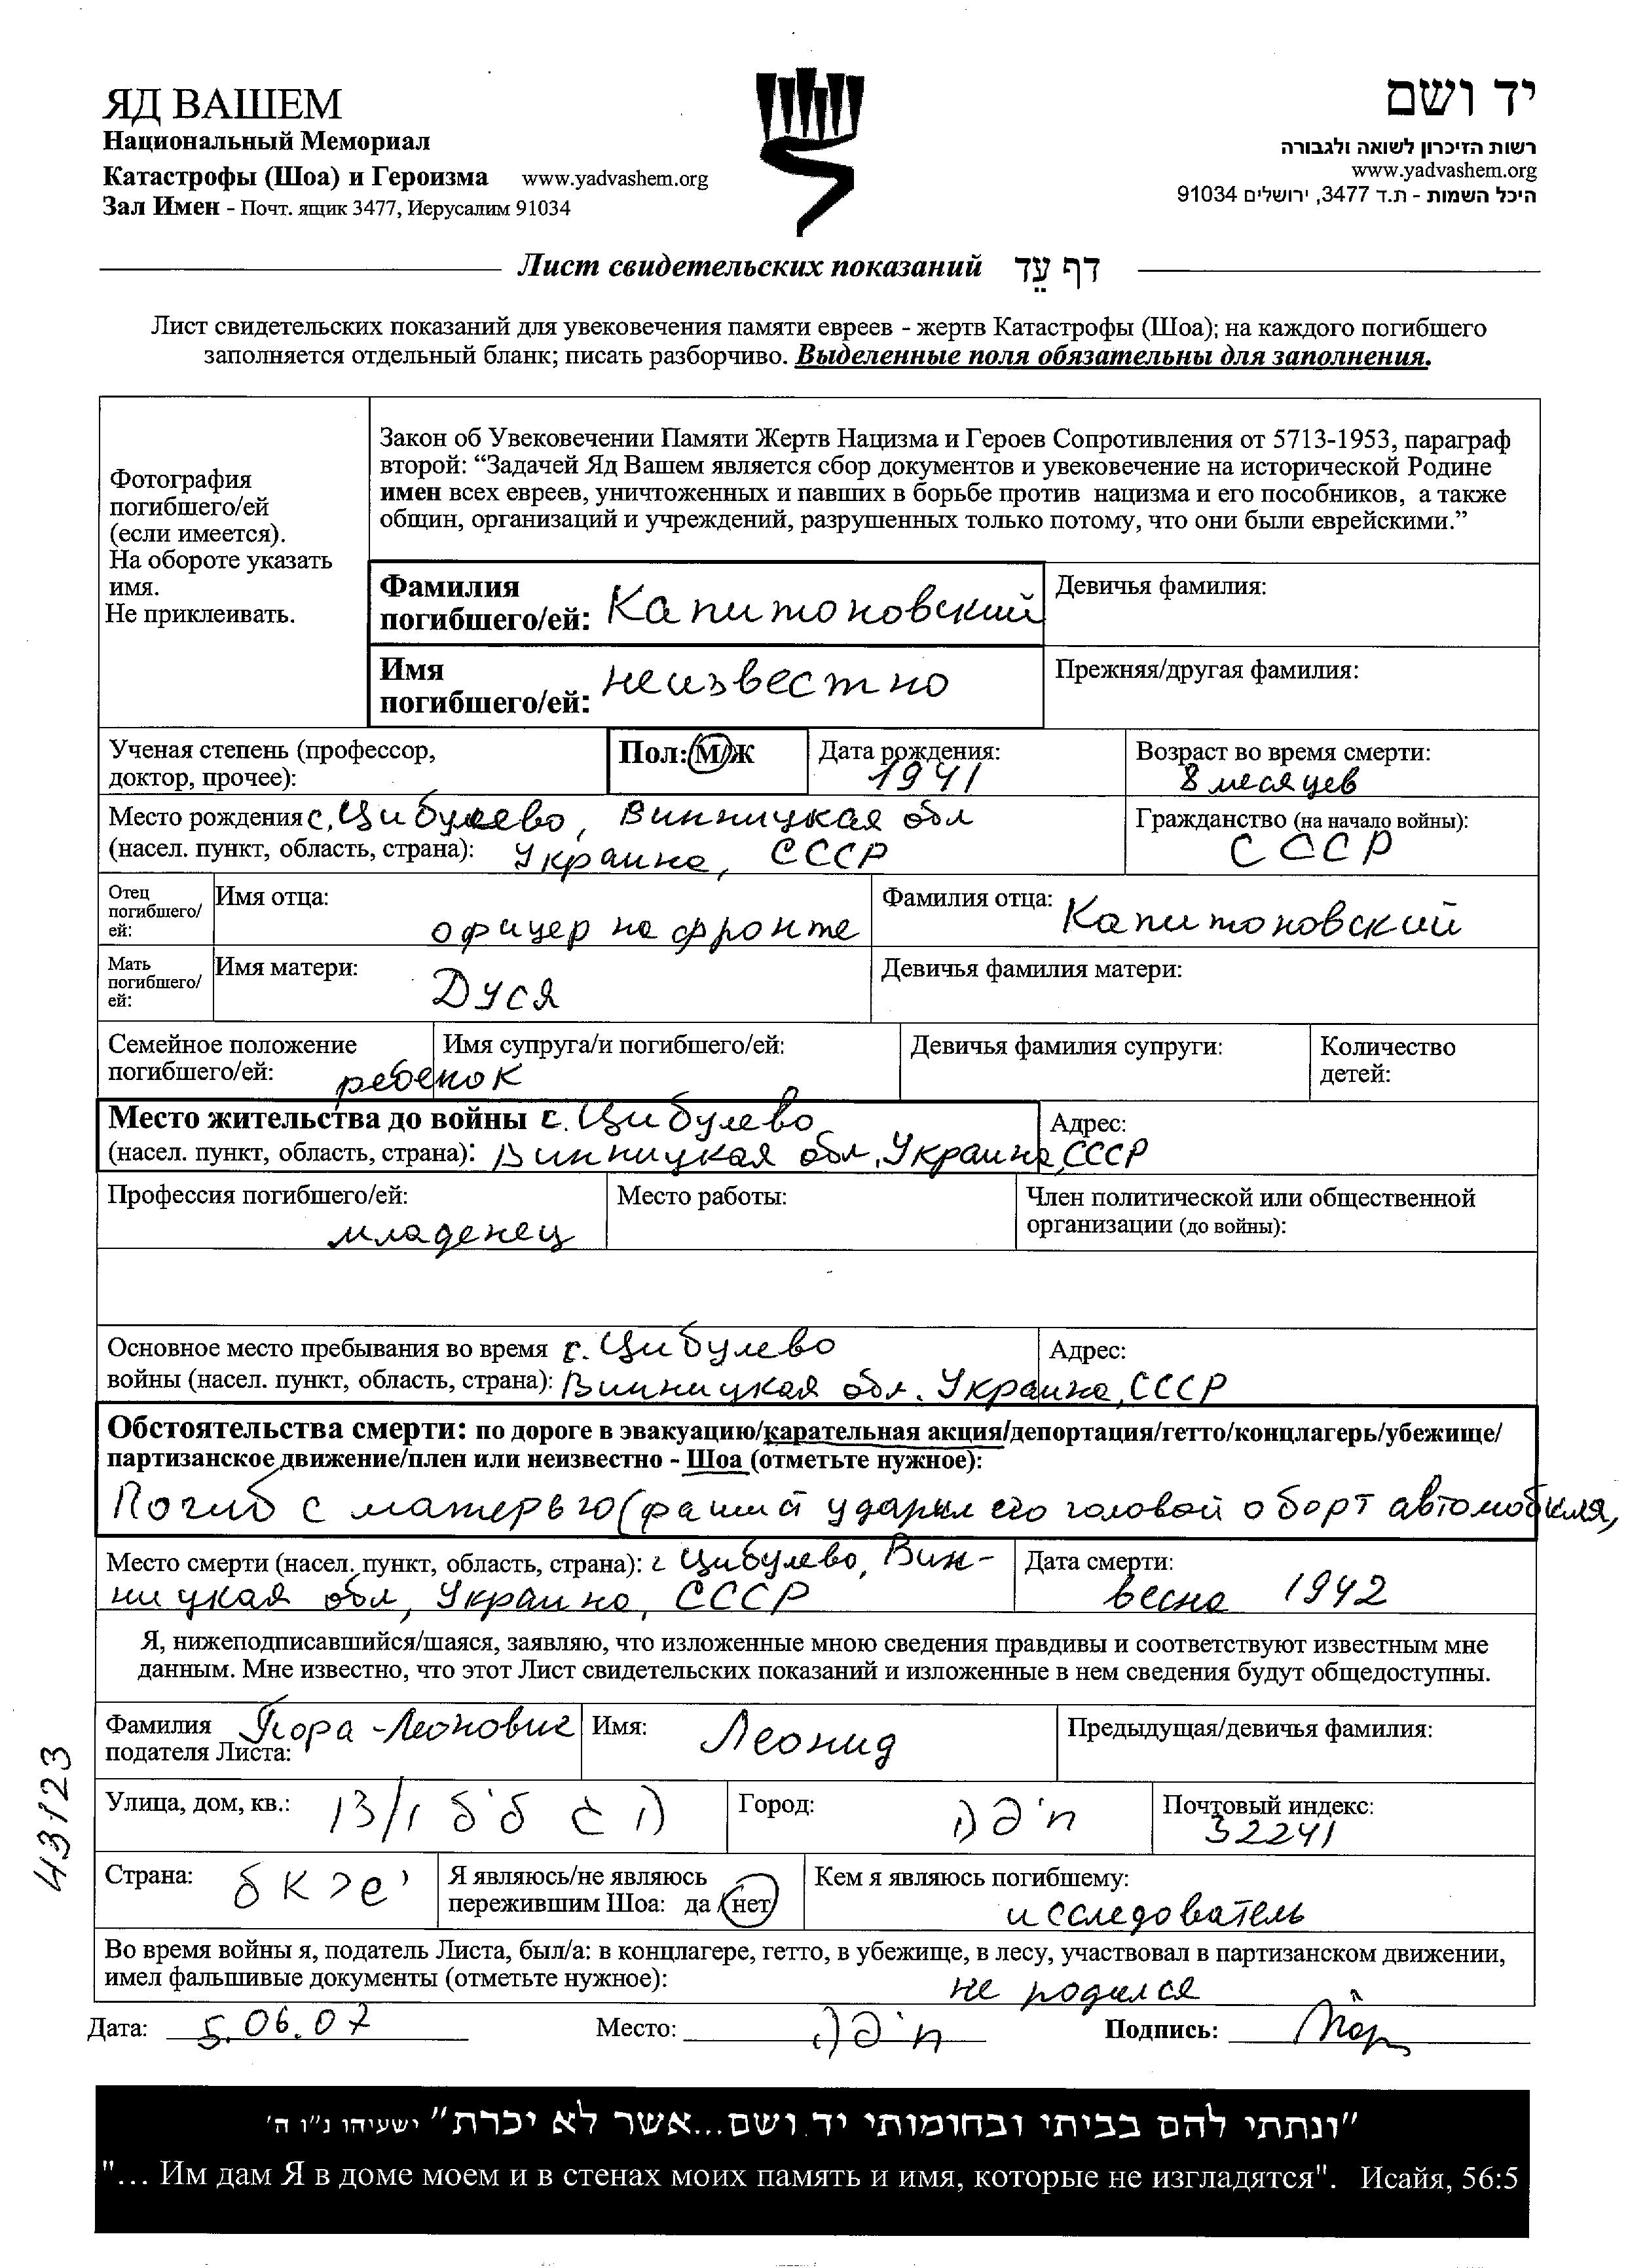 ЯД ВАШЕМ
Национальный Мемориал
Катастрофы (Шоа) и Героизма www.yadvashem.org
Зал Имен - Почт. ящик 3477, Иерусалим 91034
יד ושם
רשות הזיכרון לשואה ולגבורה
www.yadvashem.org
היכל השמות - ת.ד 3477, ירושלים 91034
Лист свидетельских показаний דף עֵד
Лист свидетельских показаний для увековечения памяти евреев - жертв Катастрофы (Шоа); на каждого погибшего
заполняется отдельный бланк; писать разборчиво. Выделенные поля обязательны для заполнения.
Фотография
погибшего/ей
(если имеется).
На обороте указать
имя.
Не приклеивать.
Закон об Увековечении Памяти Жертв Нацизма и Героев Сопротивления от 5713-1953, параграф
второй: “Задачей Яд Вашем является сбор документов и увековечение на исторической Родине
имен всех евреев, уничтоженных и павших в борьбе против нацизма и его пособников, а также
общин, организаций и учреждений, разрушенных только потому, что они были еврейскими.”
Фамилия
погибшего/ей: Капитоновский
Девичья фамилия:
Имя
погибшего/ей: неизвестно
Прежняя/другая фамилия:
Ученая степень (профессор,
доктор, прочее):
Пол: М/Ж
Дата рождения:
1941
Возраст во время смерти:
8 месяцев
Место рождения с. Цибулево, Винницкая обл
(насел. пункт, область, страна): Украина, СССР
Гражданство (на начало войны):
СССР
Отец
погибшего/
ей:
Имя отца:
офицер на фронте
Фамилия отца: Капитоновский
Мать
погибшего/
ей:
Имя матери:
Дуся
Девичья фамилия матери:
Семейное положение
погибшего/ей: ребенок
Имя супруга/и погибшего/ей:
Девичья фамилия супруги:
Количество
детей:
Место жительства до войны с. Цибулево
(насел. пункт, область, страна): Винницкая обл, Украина, СССР
Адрес:
Профессия погибшего/ей:
младенец
Место работы:
Член политической или общественной
организации (до войны):
Основное место пребывания во время с. Цибулево
войны (насел. пункт, область, страна): Винницкая обл. Украина, СССР
Адрес:
Обстоятельства смерти: по дороге в эвакуацию/карательная акция/депортация/гетто/концлагерь/убежище/
партизанское движение/плен или неизвестно - Шоа (отметьте нужное):
Погиб с матерью (фашист ударил его головой о борт автомобиля,
Место смерти (насел. пункт, область, страна): с Цибулево, Вин-
ницкая обл, Украина, СССР
Дата смерти:
весна 1942
Я, нижеподписавшийся/шаяся, заявляю, что изложенные мною сведения правдивы и соответствуют известным мне
данным. Мне известно, что этот Лист свидетельских показаний и изложенные в нем сведения будут общедоступны.
Фамилия Пора-Леонович
подателя Листа:
Имя: Леонид
Предыдущая/девичья фамилия:
Улица, дом, кв.: 13/1
Город: חיפה
Почтовый индекс:
32241
Страна: ישראל
Я являюсь/не являюсь
пережившим Шоа: да /нет
Кем я являюсь погибшему:
исследователь
Во время войны я, податель Листа, был/а: в концлагере, гетто, в убежище, в лесу, участвовал в партизанском движении,
имел фальшивые документы (отметьте нужное): не родился
Дата: 5.06.07 Место: חיפה Подпись:
43123
"ונתתי להם בביתי ובחומותי יד ושם...אשר לא יכרת" ישעיהו נ"ו ה'
"... Им дам Я в доме моем и в стенах моих память и имя, которые не изгладятся". Исайя, 56:5